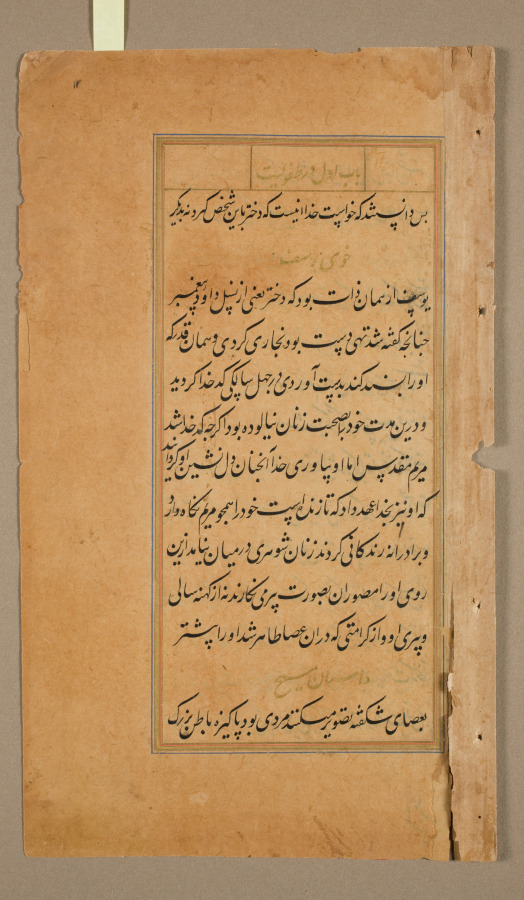 باب اول در طفولیت
بس دانستند که خواست خدا اینست که دختر باین شخص کرد نه بدیگر
خوی یوسف
یوسف از همان ذات بود که دختر یعنی از نسل داود پیغمبر
چنانچه کفته شد تهی دست بود نجاری کردی و همان قدر که
او را بسند کند بدست آوردی در چهل سالکی کدخدا کردید
و درین مدت خود بصحبت زنان نیالوده بود اکرچه که خدا شد
مریم مقدس اما او بیاوری خدا آنچنان دل نشین او کرداند
که او نیز بخدا عهد داد که تا زنده است خود را همچو مریم نکاه دارد
و برادرانه زندکانی کردند زنان شوهری درمیان نیامد ازین
روی او را مصوران بصورت پر می نکارند نه از کهنه سالی
و پیری او و از کرامتی که در ان عصا ظاهر شد او را پشتر
داستان مسیح
بعصای شکفته تصویر میکنند مردی بود پاکیزه باطن بزرک